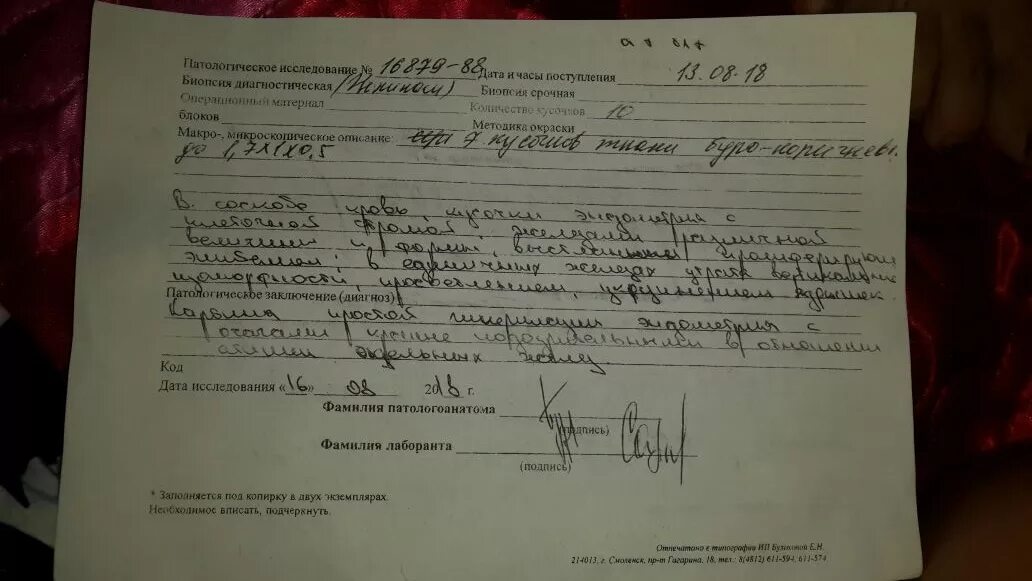 Патологическое исследование № 16879-88 Дата и часы поступления 13.08.18
Биопсия диагностическая Биопсия срочная
Операционный материал Количество кусочков 10
блоков Методика окраски
Макро-, микроскопическое описание: 7 кусочков ткани буро-коричнев.
до 1,7х1х0,5
В соскобе кровь, кусочки эндометрия с
клеточной стромой, железами различной
величины и формы, выстланные пролиферирующ.
эпителием; в единичных железах утрата вертикальной
анизоморфности, просветлением, укрупнением ядрышек.
Патологическое заключение (диагноз)
Картина простой гиперплазии эндометрия с
очагами крайне подозрительными в отношении
атипии отдельных желез
Код
Дата исследования «16» 08 2018 г.
Фамилия патологоанатома
(подпись)
Фамилия лаборанта
(подпись)
* Заполняется под копирку в двух экземплярах.
Необходимое вписать, подчеркнуть.
Отпечатано в типографии ИП Е.Н.
214013, г. Смоленск, пр-т Гагарина, 18, тел.: 8(4812) 611-594, 611-574